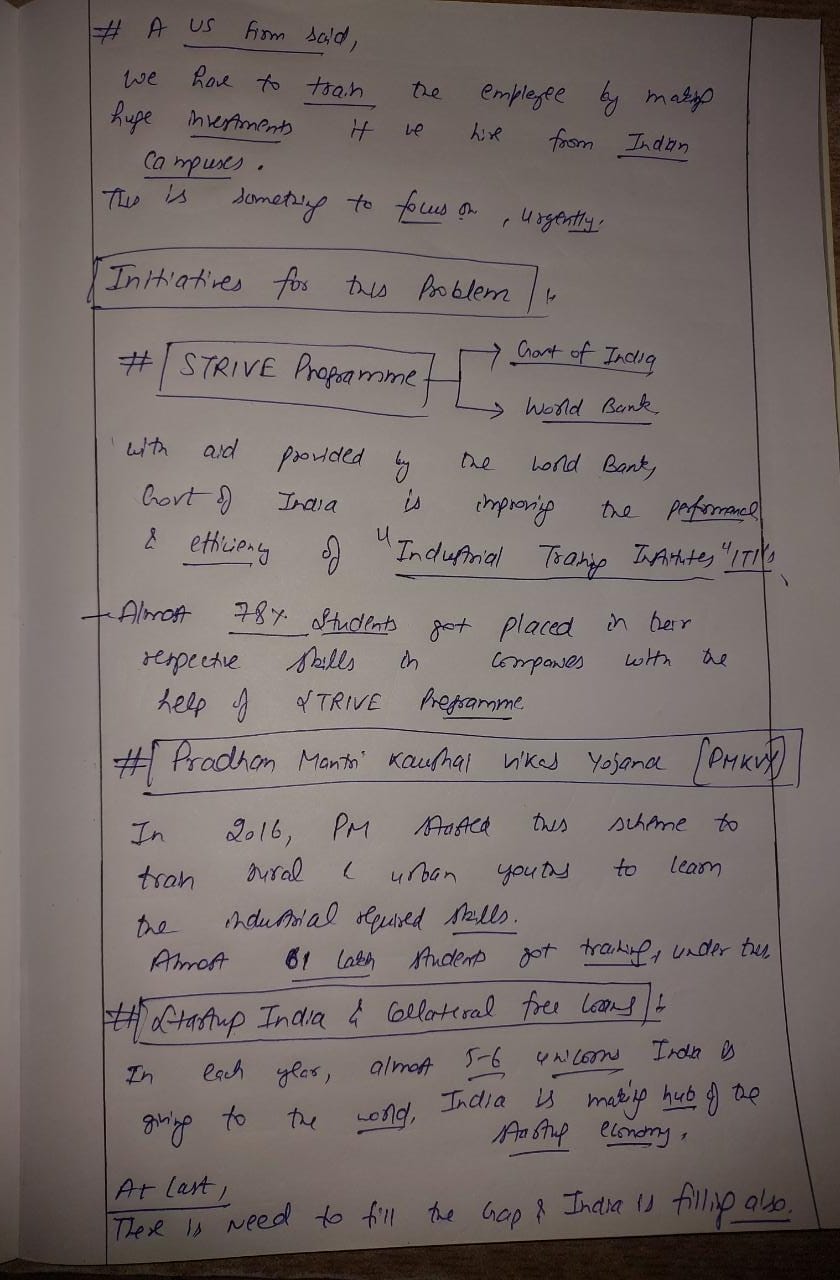 # A US firm said,
We have to train the employee by making
huge investments if we hire from Indian
Campuses.
This is something to focus on, urgently.
Initiatives for this Problem :
# STRIVE Programme → Govt of India
→ World Bank
with aid provided by the World Bank,
Govt of India is improving the performance
& efficiency of "Industrial Training Institutes" ITI's
→ Almost 78% students got placed in their
respective skills in companies with the
help of STRIVE Programme
# Pradhan Mantri Kaushal Vikas Yojana [PMKVY]
In 2016, PM started this scheme to
train rural & urban youths to learn
the industrial required skills.
Almost 61 lakh students got training, under this
# Startup India & Collateral free loans :
In each year, almost 5-6 unicorns India is
giving to the world, India is making hub of the
startup economy,
At last,
There is need to fill the Gap & India is filling also.